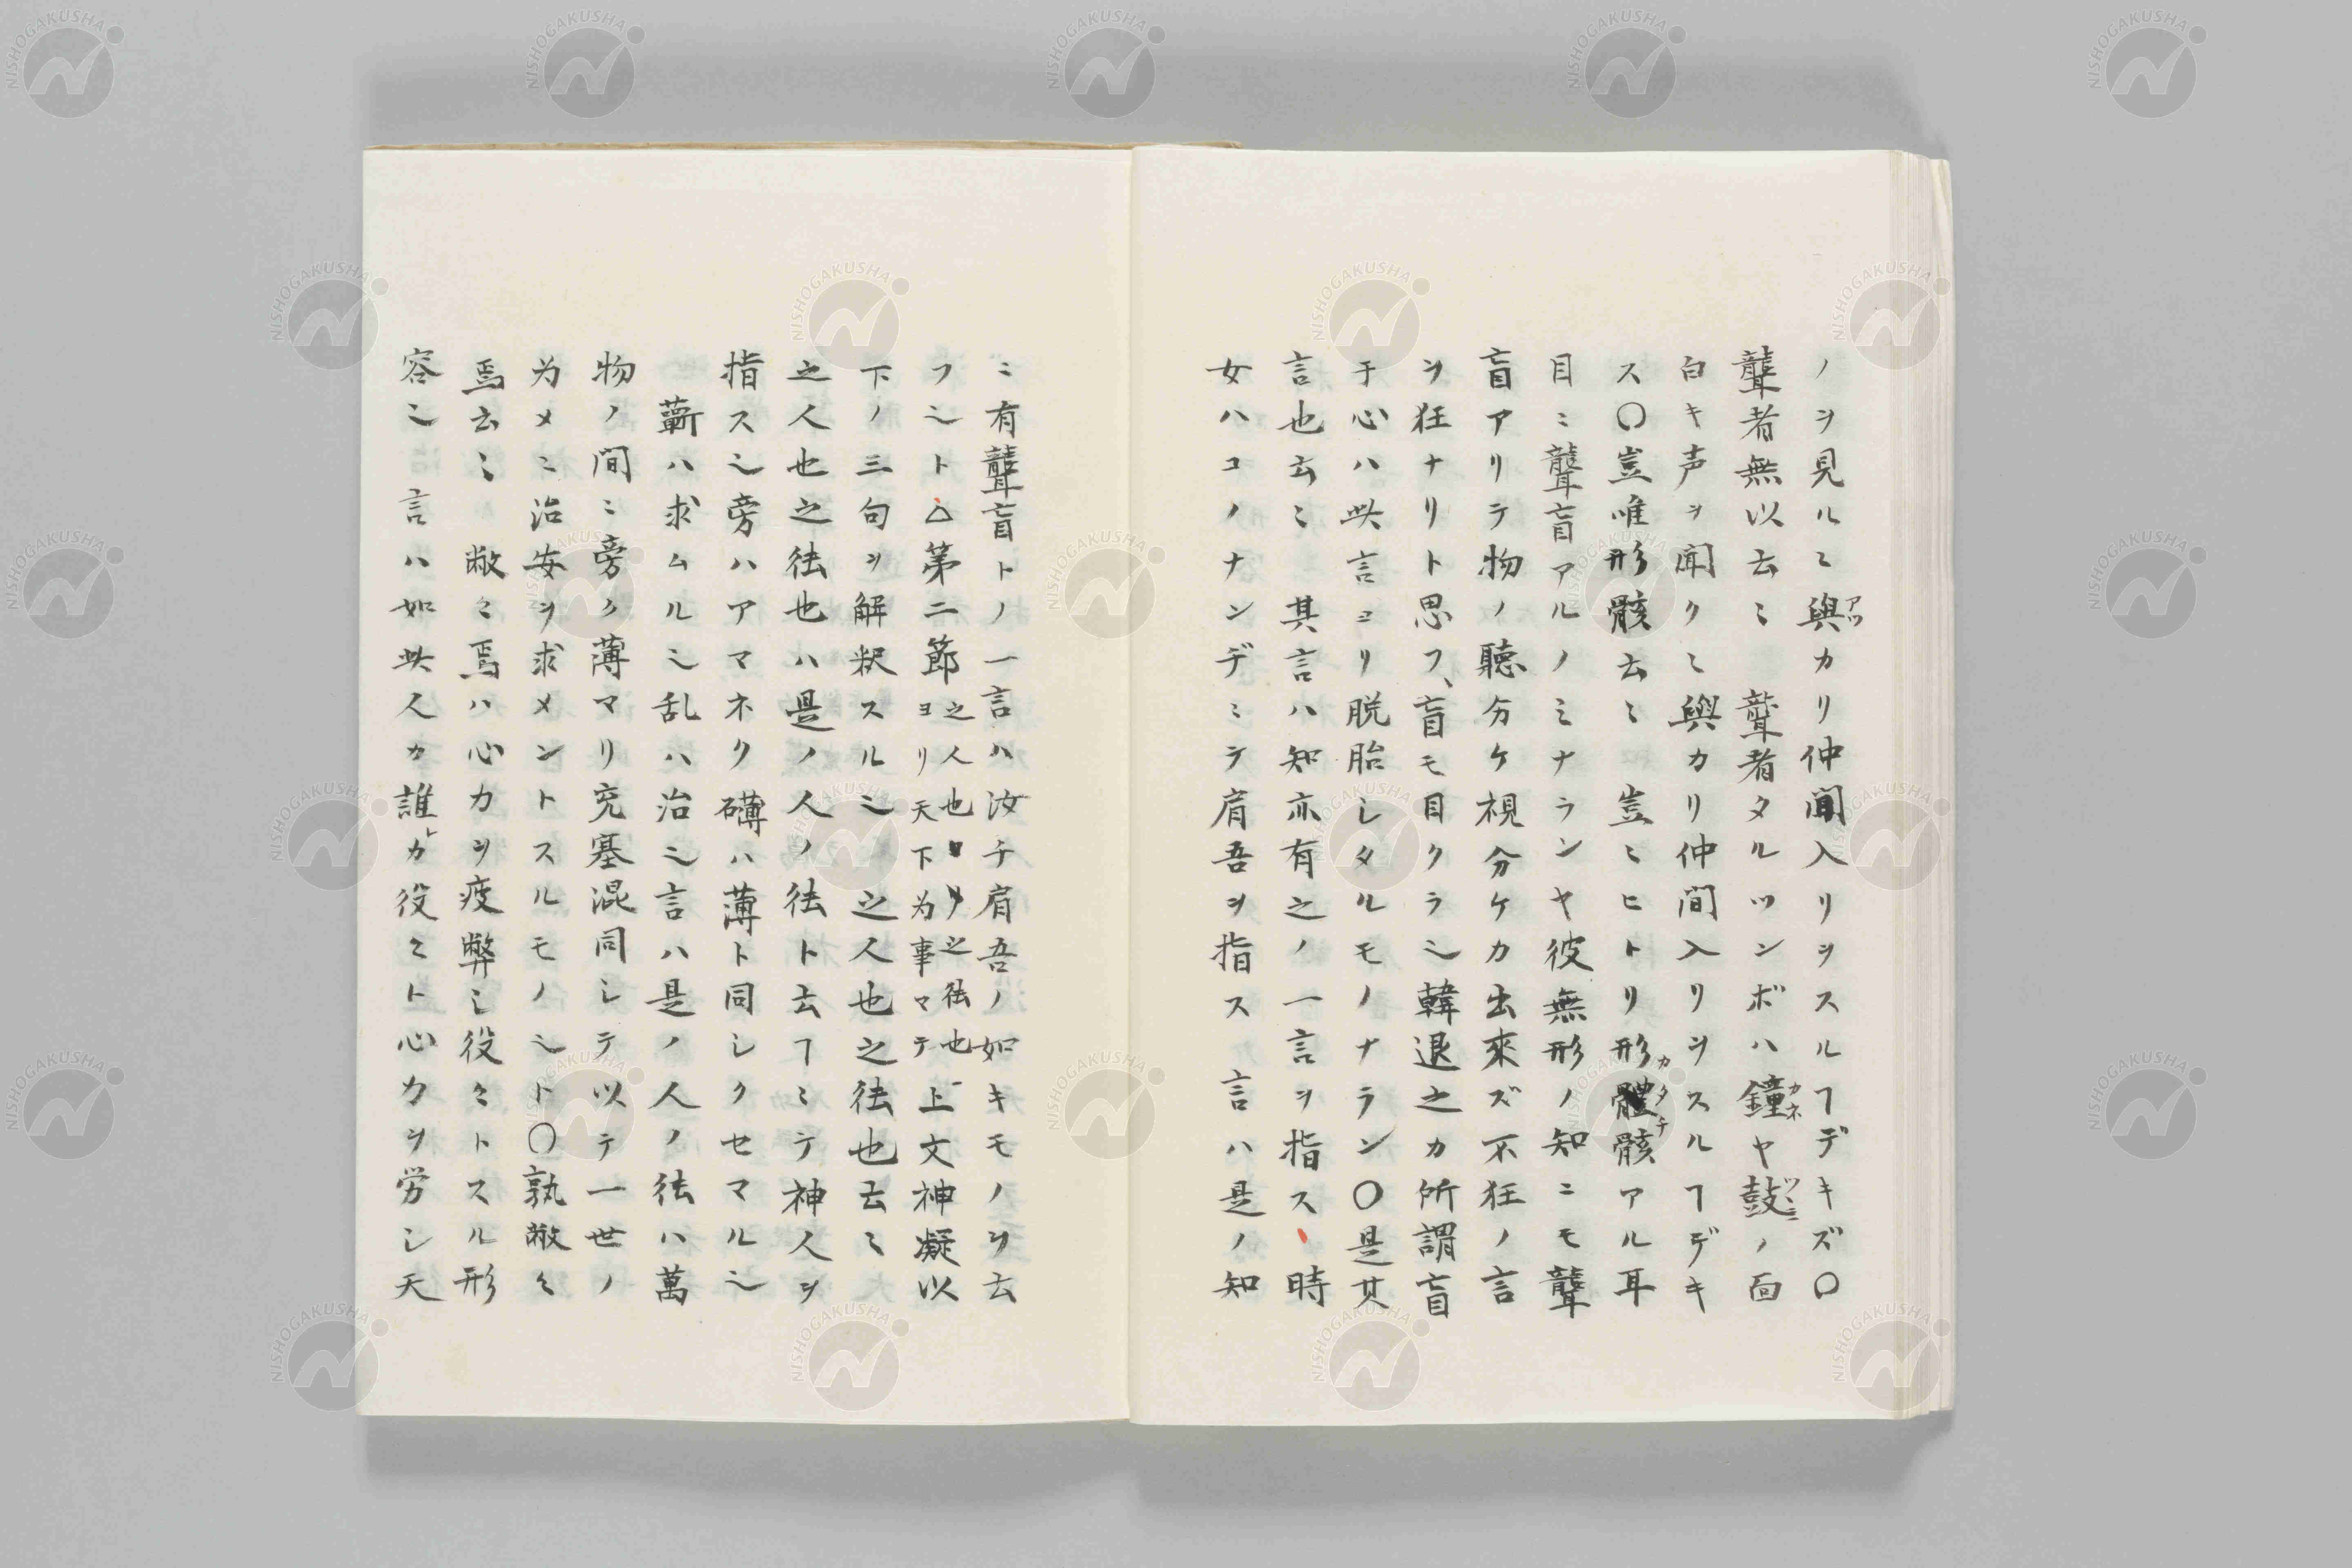 ノヲ見ルニ與カリ仲間入リヲスルヿデキズ〇
聾者無以云〻　聾者タルツンボハ鐘ヤ鼓ノ面
白キ声ヲ聞クニ與カリ仲間入リヲスルヿデキ
ス〇豈唯形骸云〻　豈ニヒトリ形體骸アル耳
目ニ聾盲アルノミナランヤ彼無形ノ知ニモ聾
盲アリテ物ノ聴分ケ視分ケカ出來ズ不狂ノ言
ヲ狂ナリト思フ、盲モ目クラ也韓退之カ所謂盲
于心ハ此言ヨリ脱胎シタルモノナラン〇是其
言也云〻　其言ハ知亦有之ノ一言ヲ指ス、時
女ハコノナンヂニテ肩吾ヲ指ス　言ハ是ノ知
ニ有聾盲トノ一言ハ汝チ肩吾ノ如キモノヲ云
フ也ト△第二節之人也ヨリ之徳也天下为事マテ上文神凝以
下ノ三句ヲ解釈スル也　之人也之徳也云〻
之人也之徳也ハ是ノ人ノ徳ト云ヿニテ神人ヲ
指ス也旁ハアマネク礴ハ薄ト同シクセマル也
蘄ハ求ムル也乱ハ治也言ハ是ノ人ノ徳ハ萬
物ノ間ニ旁ク薄マリ充塞混同シテ以テ一世ノ
为メニ治安ヲ求メントスルモノ也ト〇孰敝〻
焉云〻　敝〻焉ハ心力ヲ疲弊シ役〻トスル形
容也言ハ如此人カ誰カ役〻ト心力ヲ労シ天